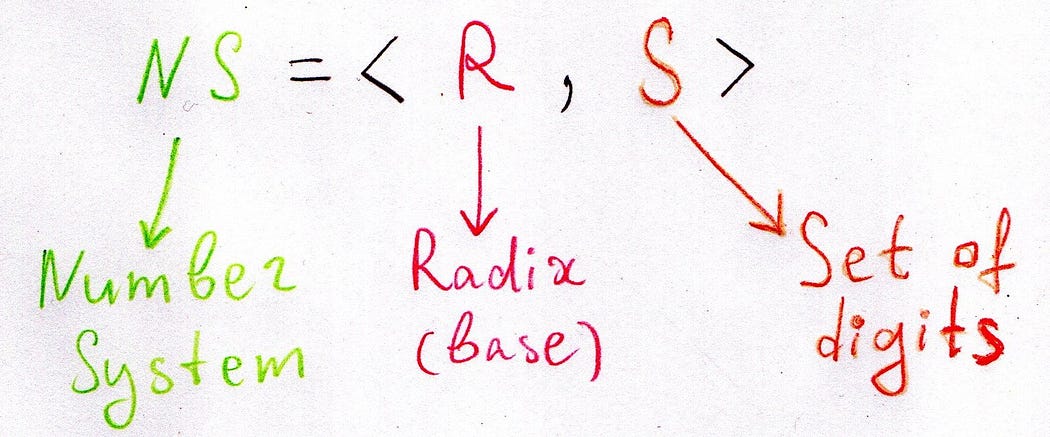 NS = < R , S >
Number System
Radix (base)
Set of digits